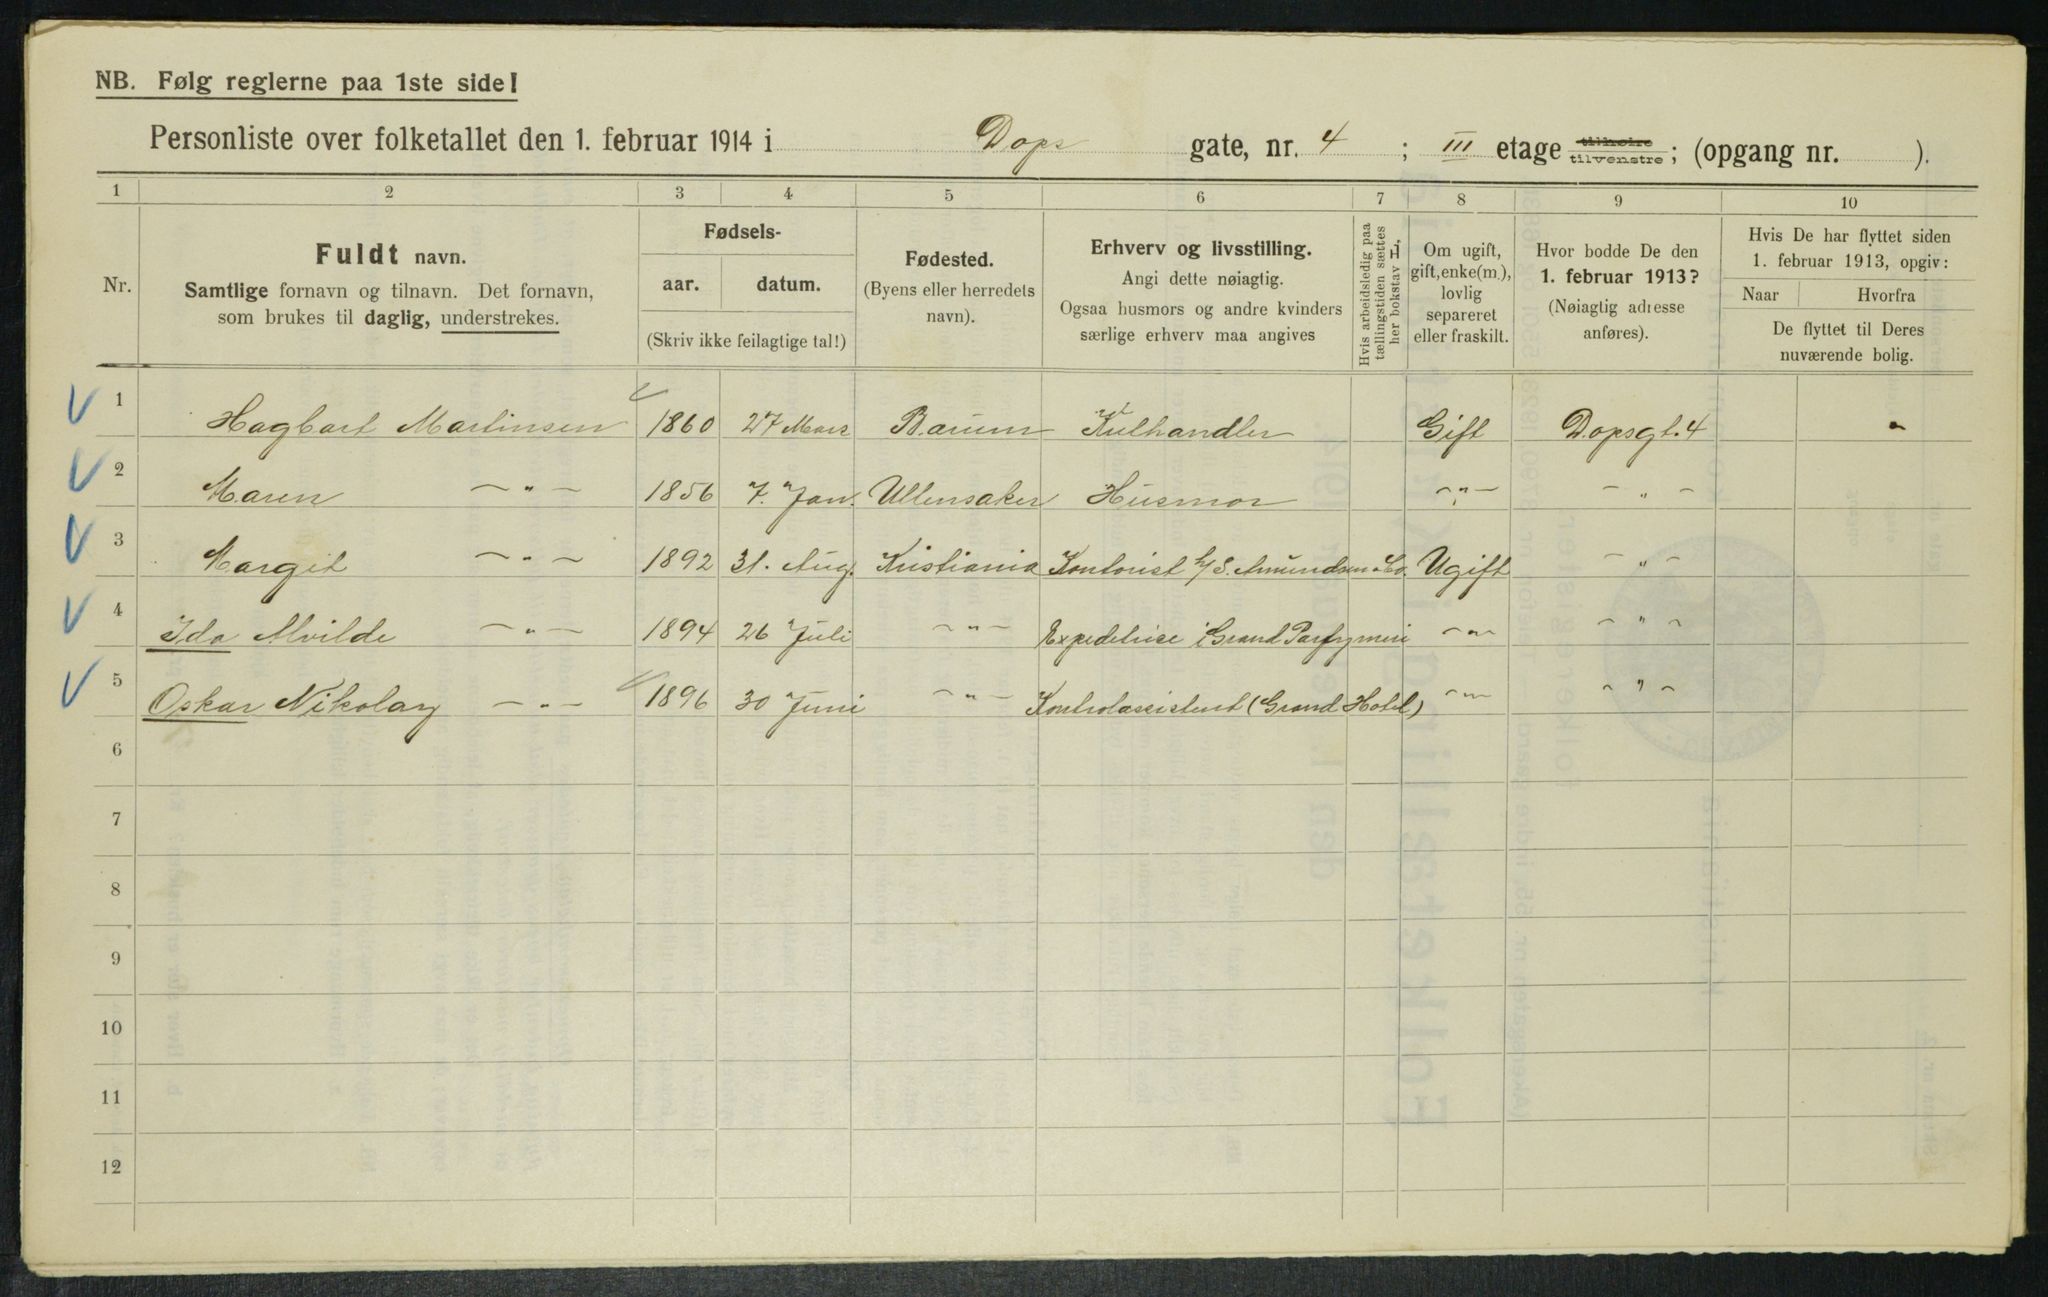 NB. Følg reglerne paa 1ste side!
Personliste over folketallet den 1. februar 1914 i Dops gate, nr. 4 ; III etage tilhøire tilvenstre ; (opgang nr. ).
1 2 3 4 5 6 7 8 9 10
Nr.
Fuldt navn.
Samtlige fornavn og tilnavn. Det fornavn,
som brukes til daglig, understrekes.
Fødsels-
aar. datum.
(Skriv ikke feilagtige tal!)
Fødested.
(Byens eller herredets
navn).
Erhverv og livsstilling.
Angi dette nøiagtig.
Ogsaa husmors og andre kvinders
særlige erhverv maa angives
Hvis arbeidsledig paa
tællingstiden sættes
her bokstav L.
Om ugift,
gift, enke(m.),
lovlig
separeret
eller fraskilt.
Hvor bodde De den
1. februar 1913?
(Nøiagtig adresse
anføres).
Hvis De har flyttet siden
1. februar 1913, opgiv:
Naar Hvorfra
De flyttet til Deres
nuværende bolig.
1 Hagbart Martinsen 1860 27 Mars Bærum Kulhandler Gift Dopsgt. 4 "
2 Maren — " — 1856 7. Jan. Ullensaker Husmor — " — — " —
3 Margit — " — 1892 31. Aug. Kristiania Kontorist h/ S. Amundsen & Co. Ugift — " —
4 Ida Alvilde — " — 1894 26 Juli — " — Expeditrice i Grand Parfymeri — " — — " —
5 Oskar Nikolay — " — 1896 30 Juni — " — Kontorassistent (Grand Hotel) — " — — " —
6
7
8
9
10
11
12